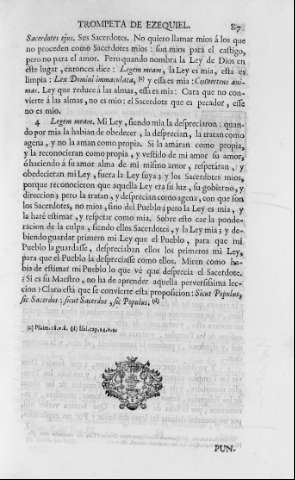 TROMPETA DE EZEQUIEL. 87
Sacerdotes ejus, Ses Sacerdotes. No quiero llamar mios á los que
no proceden como Sacerdotes mios: son mios para el castigo,
pero no para el amor. Pero quando nombra la Ley de Dios en
este lugar, entonces dice: Legem meam, la Ley es mia, esta es
limpia: Lex Domini immaculata, (c) y essa es mia: Convertens ani-
mas. Ley que reduce á las almas, essa es mia: Cura que no con-
vierte á las almas, no es mio: el Sacerdote que es pecador, esse
no es mio.
4 Legem meam. Mi Ley, siendo mia la despreciaron: quan-
do por mia la habian de obedecer, la desprecian, la tratan como
agena, y no la aman como propia. Si la amáran como propia,
y la reconocieran como propia, y vestido de mi amor su amor,
ó haciendo á su amor alma de mi mismo amor, respetáran, y
obedecieran mi Ley, fuera la Ley suya; y los Sacerdotes mios,
porque reconocieron que aquella Ley era su luz, su gobierno, y
direccion; pero la tratan, y desprecian como agena, con que son
los Sacerdotes, no mios, sino del Pueblo; pero la Ley es mia, y
la haré estimar, y respetar como mia. Sobre esto cae la ponde-
racion de la culpa, siendo ellos Sacerdotes, y la Ley mia; y de-
biendo guardar primero mi Ley que el Pueblo, para que mi
Pueblo la guardasse, despreciaban ellos los primeros mi Ley,
para que el Pueblo la despreciasse como ellos. Miren como ha-
bia de estimar mi Pueblo lo que vé que desprecia el Sacerdote.
Si es su Maestro, no ha de aprender aquella perversissima lec-
cion? Claro está que se convierte esta proposicion: Sicut Populus,
sic Sacerdos: sicut Sacerdos, sic Populus. (d)
(c) Psalm. 18. v. 8. (d)
PUN-